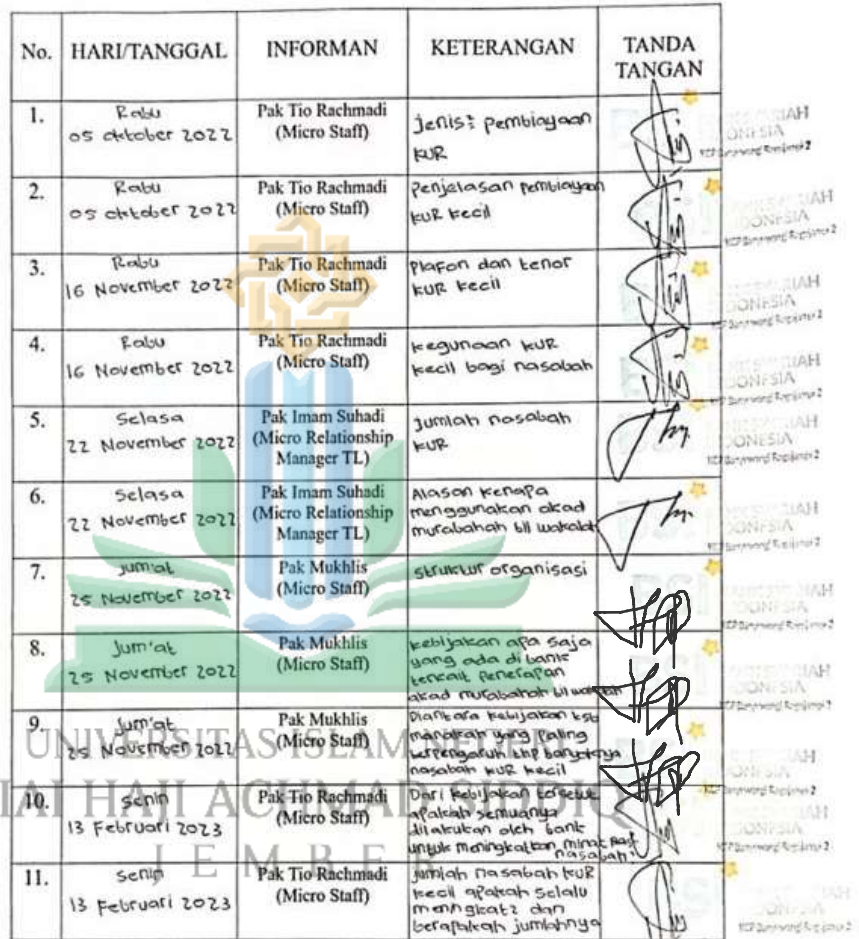 No.
HARI/TANGGAL
INFORMAN
KETERANGAN
TANDA
TANGAN
1.
Rabu
05 oktober 2022
Pak Tio Rachmadi
(Micro Staff)
jenis² pembiayaan
KUR
2.
Rabu
05 oktober 2022
Pak Tio Rachmadi
(Micro Staff)
penjelasan pembiayaan
KUR kecil
3.
Rabu
16 November 2022
Pak Tio Rachmadi
(Micro Staff)
Plafon dan tenor
KUR kecil
4.
Rabu
16 November 2022
Pak Tio Rachmadi
(Micro Staff)
kegunaan KUR
kecil bagi nasabah
5.
Selasa
22 November 2022
Pak Imam Suhadi
(Micro Relationship
Manager TL)
Jumlah nasabah
KUR
6.
Selasa
22 November 2022
Pak Imam Suhadi
(Micro Relationship
Manager TL)
Alasan kenapa
menggunakan akad
murabahah bil wakalah
7.
Jum'at
25 November 2022
Pak Mukhlis
(Micro Staff)
struktur organisasi
8.
Jum'at
25 November 2022
Pak Mukhlis
(Micro Staff)
kebijakan apa saja
yang ada di bank
terkait penerapan
akad murabahah bil wakalah
9.
Jum'at
25 November 2022
Pak Mukhlis
(Micro Staff)
Diantara kebijakan tsb
manakah yang paling
berpengaruh thp banyaknya
nasabah KUR kecil
10.
Senin
13 Februari 2023
Pak Tio Rachmadi
(Micro Staff)
Dari kebijakan tersebut
apakah semuanya
dilakukan oleh bank
untuk meningkatkan minat
nasabah
11.
Senin
13 Februari 2023
Pak Tio Rachmadi
(Micro Staff)
jumlah nasabah KUR
kecil apakah selalu
meningkat² dan
berapakah jumlahnya
UNIVERSITAS ISLAM NEGERI
KIAI HAJI ACHMAD SIDDIQ
JEMBER